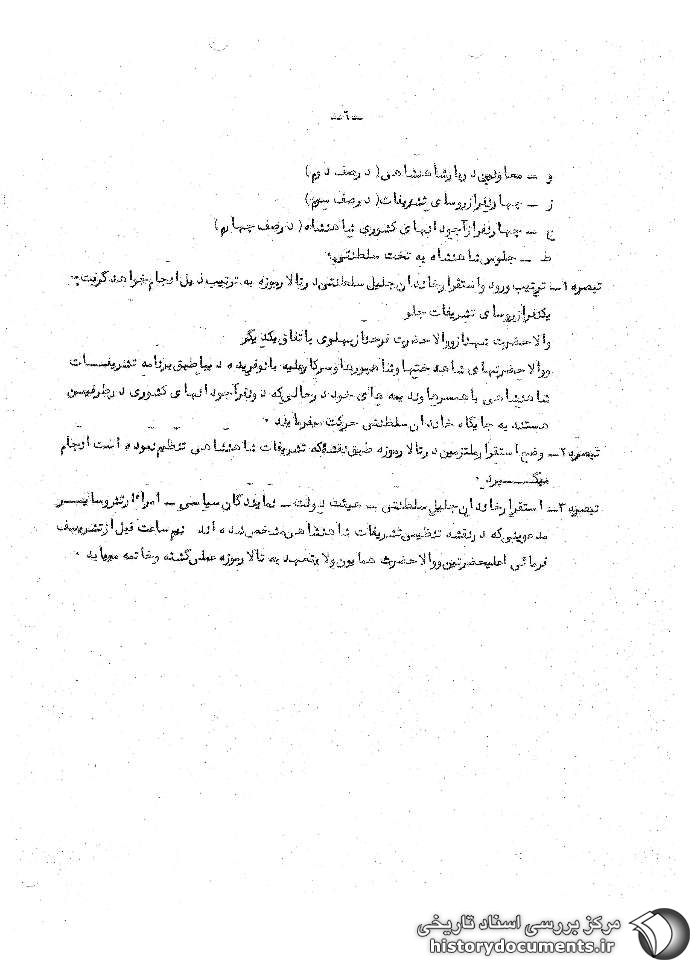 -٦-
و - معاونین دربار شاهنشاهی ( در صف دوم )
ز - چهار نفر از روسای تشریفات ( در صف سوم )
ح - چهار نفر از آجودانهای کشوری شاهنشاه ( در صف چهارم )
ط - جلوس شاهنشاه به تخت سلطنتی .
تبصره ۱- ترتیب ورود و استقرار خاندان جلیل سلطنتی در تالار موزه به ترتیب ذیل انجام خواهد گرفت .
یکنفر از روسای تشریفات جلو
والاحضرت شهناز و والاحضرت فرحناز پهلوی باتفاق یکدیگر
و والاحضرتهای شاهدختها و شاهپورها و سرکار علیه بانو فریده دیبا طبق برنامه تشریفات
شاهنشاهی با همسرها و ندیمه های خود در حالی که دو نفر آجودانهای کشوری در طرفین
هستند به جایگاه خاندان سلطنتی حرکت میفرمایند .
تبصره ۲- وضع استقرار ملتزمین در تالار موزه طبق نقشه‌که تشریفات شاهنشاهی تنظیم نموده است انجام
میگیرد .
تبصره ۳- استقرار خاندان جلیل سلطنتی - هیئت دولت - نمایندگان سیاسی - امراء ارتش و سایر
مدعوینی که در نقشه تنظیمی تشریفات شاهنشاهی مشخص شده اند نیم ساعت قبل از تشریف
فرمائی اعلیحضرتین و والاحضرت همایون ولایتعهد به تالار موزه عملی گشته و خاتمه مییابد .
مرکز بررسی اسناد تاریخی
historydocuments.ir